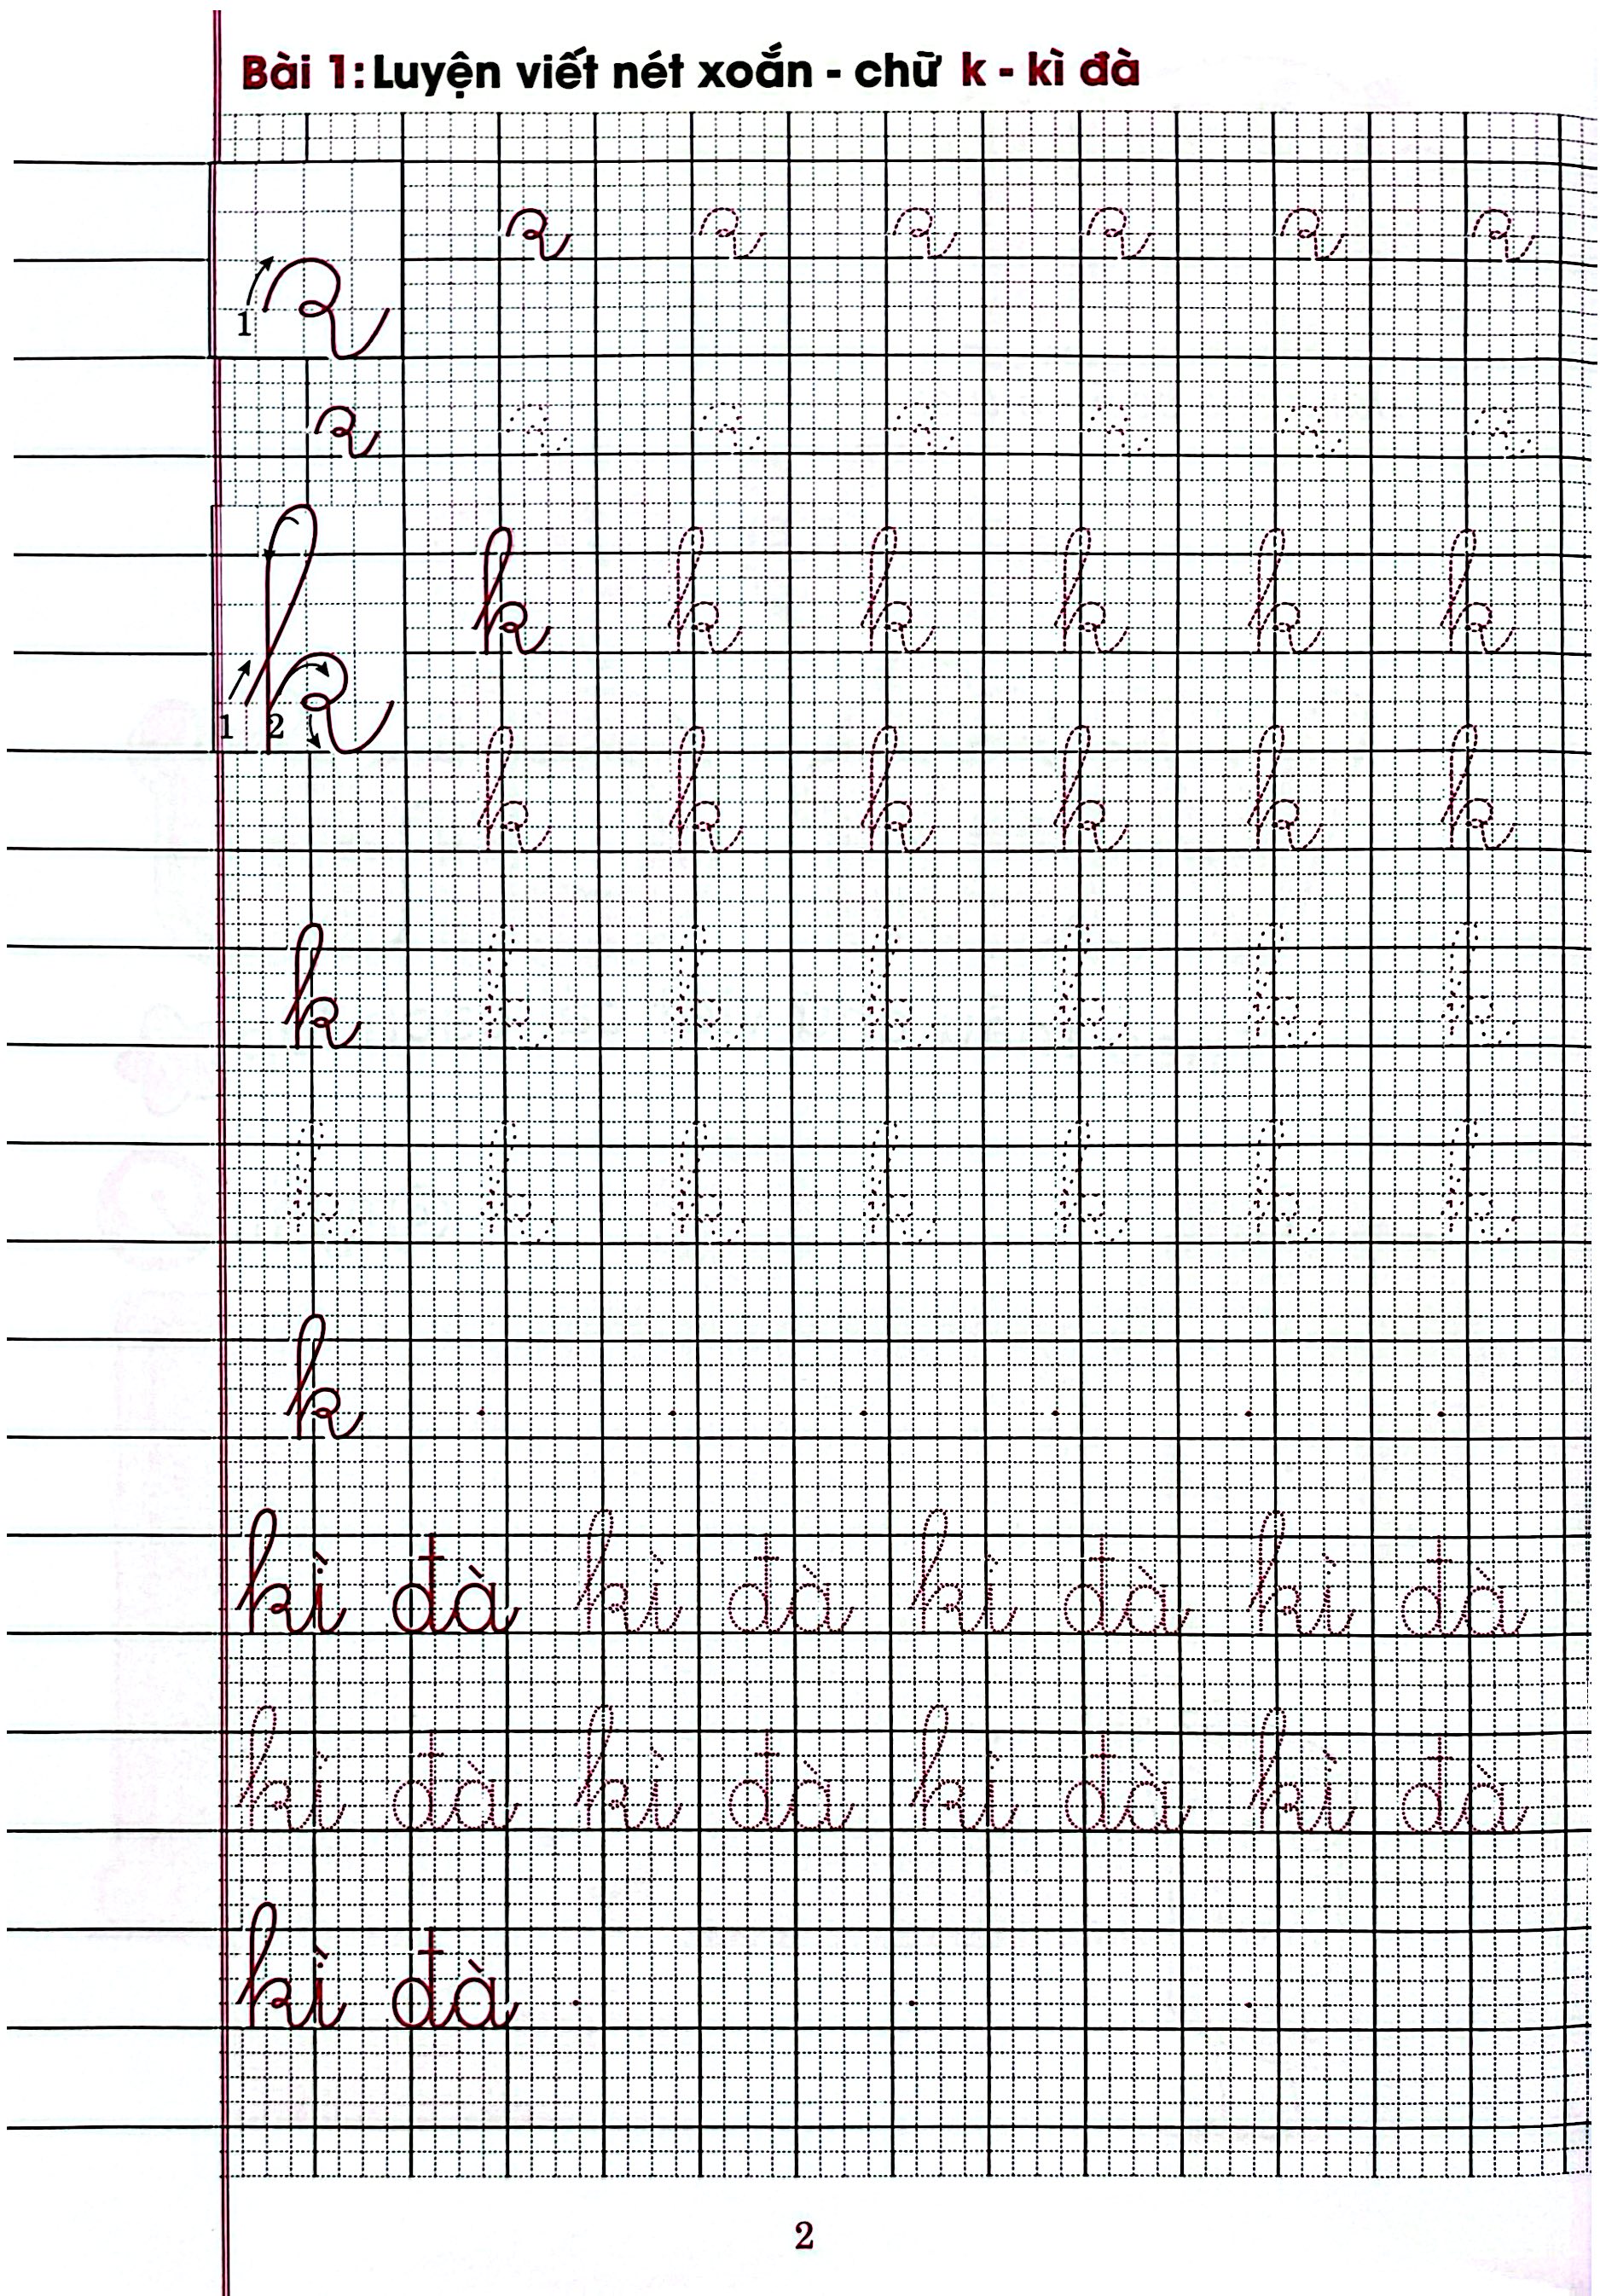 Bài 1: Luyện viết nét xoắn - chữ k - kì đà
1
k k k k k k
1 2
k k k k k k
k k k k k k k
k k k k k k k
k
kì đà kì đà kì đà kì đà
kì đà kì đà kì đà kì đà
kì đà
2